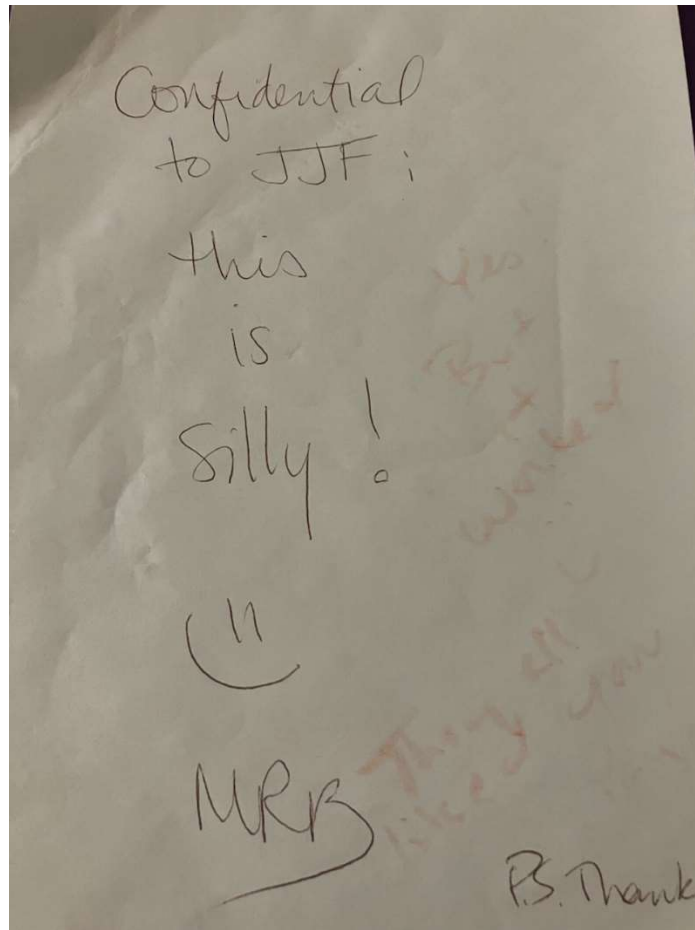 Confidential
to JJF;
this
is
Silly!
MRB
P.S. Thank
Yes
But
it
worked
They all
liked you